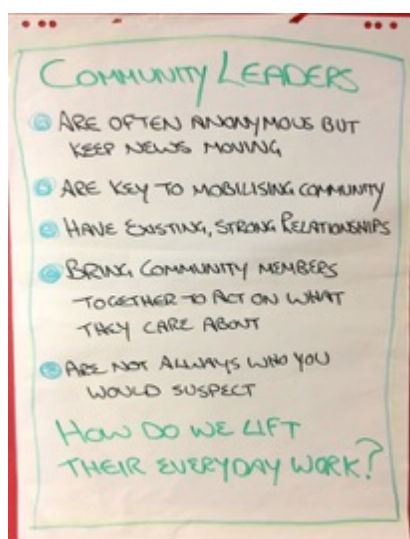 COMMUNITY LEADERS
ARE OFTEN ANONYMOUS BUT
KEEP NEWS MOVING
ARE KEY TO MOBILISING COMMUNITY
HAVE EXISTING, STRONG RELATIONSHIPS
BRING COMMUNITY MEMBERS
TOGETHER TO ACT ON WHAT
THEY CARE ABOUT
ARE NOT ALWAYS WHO YOU
WOULD SUSPECT
HOW DO WE LIFT
THEIR EVERYDAY WORK?